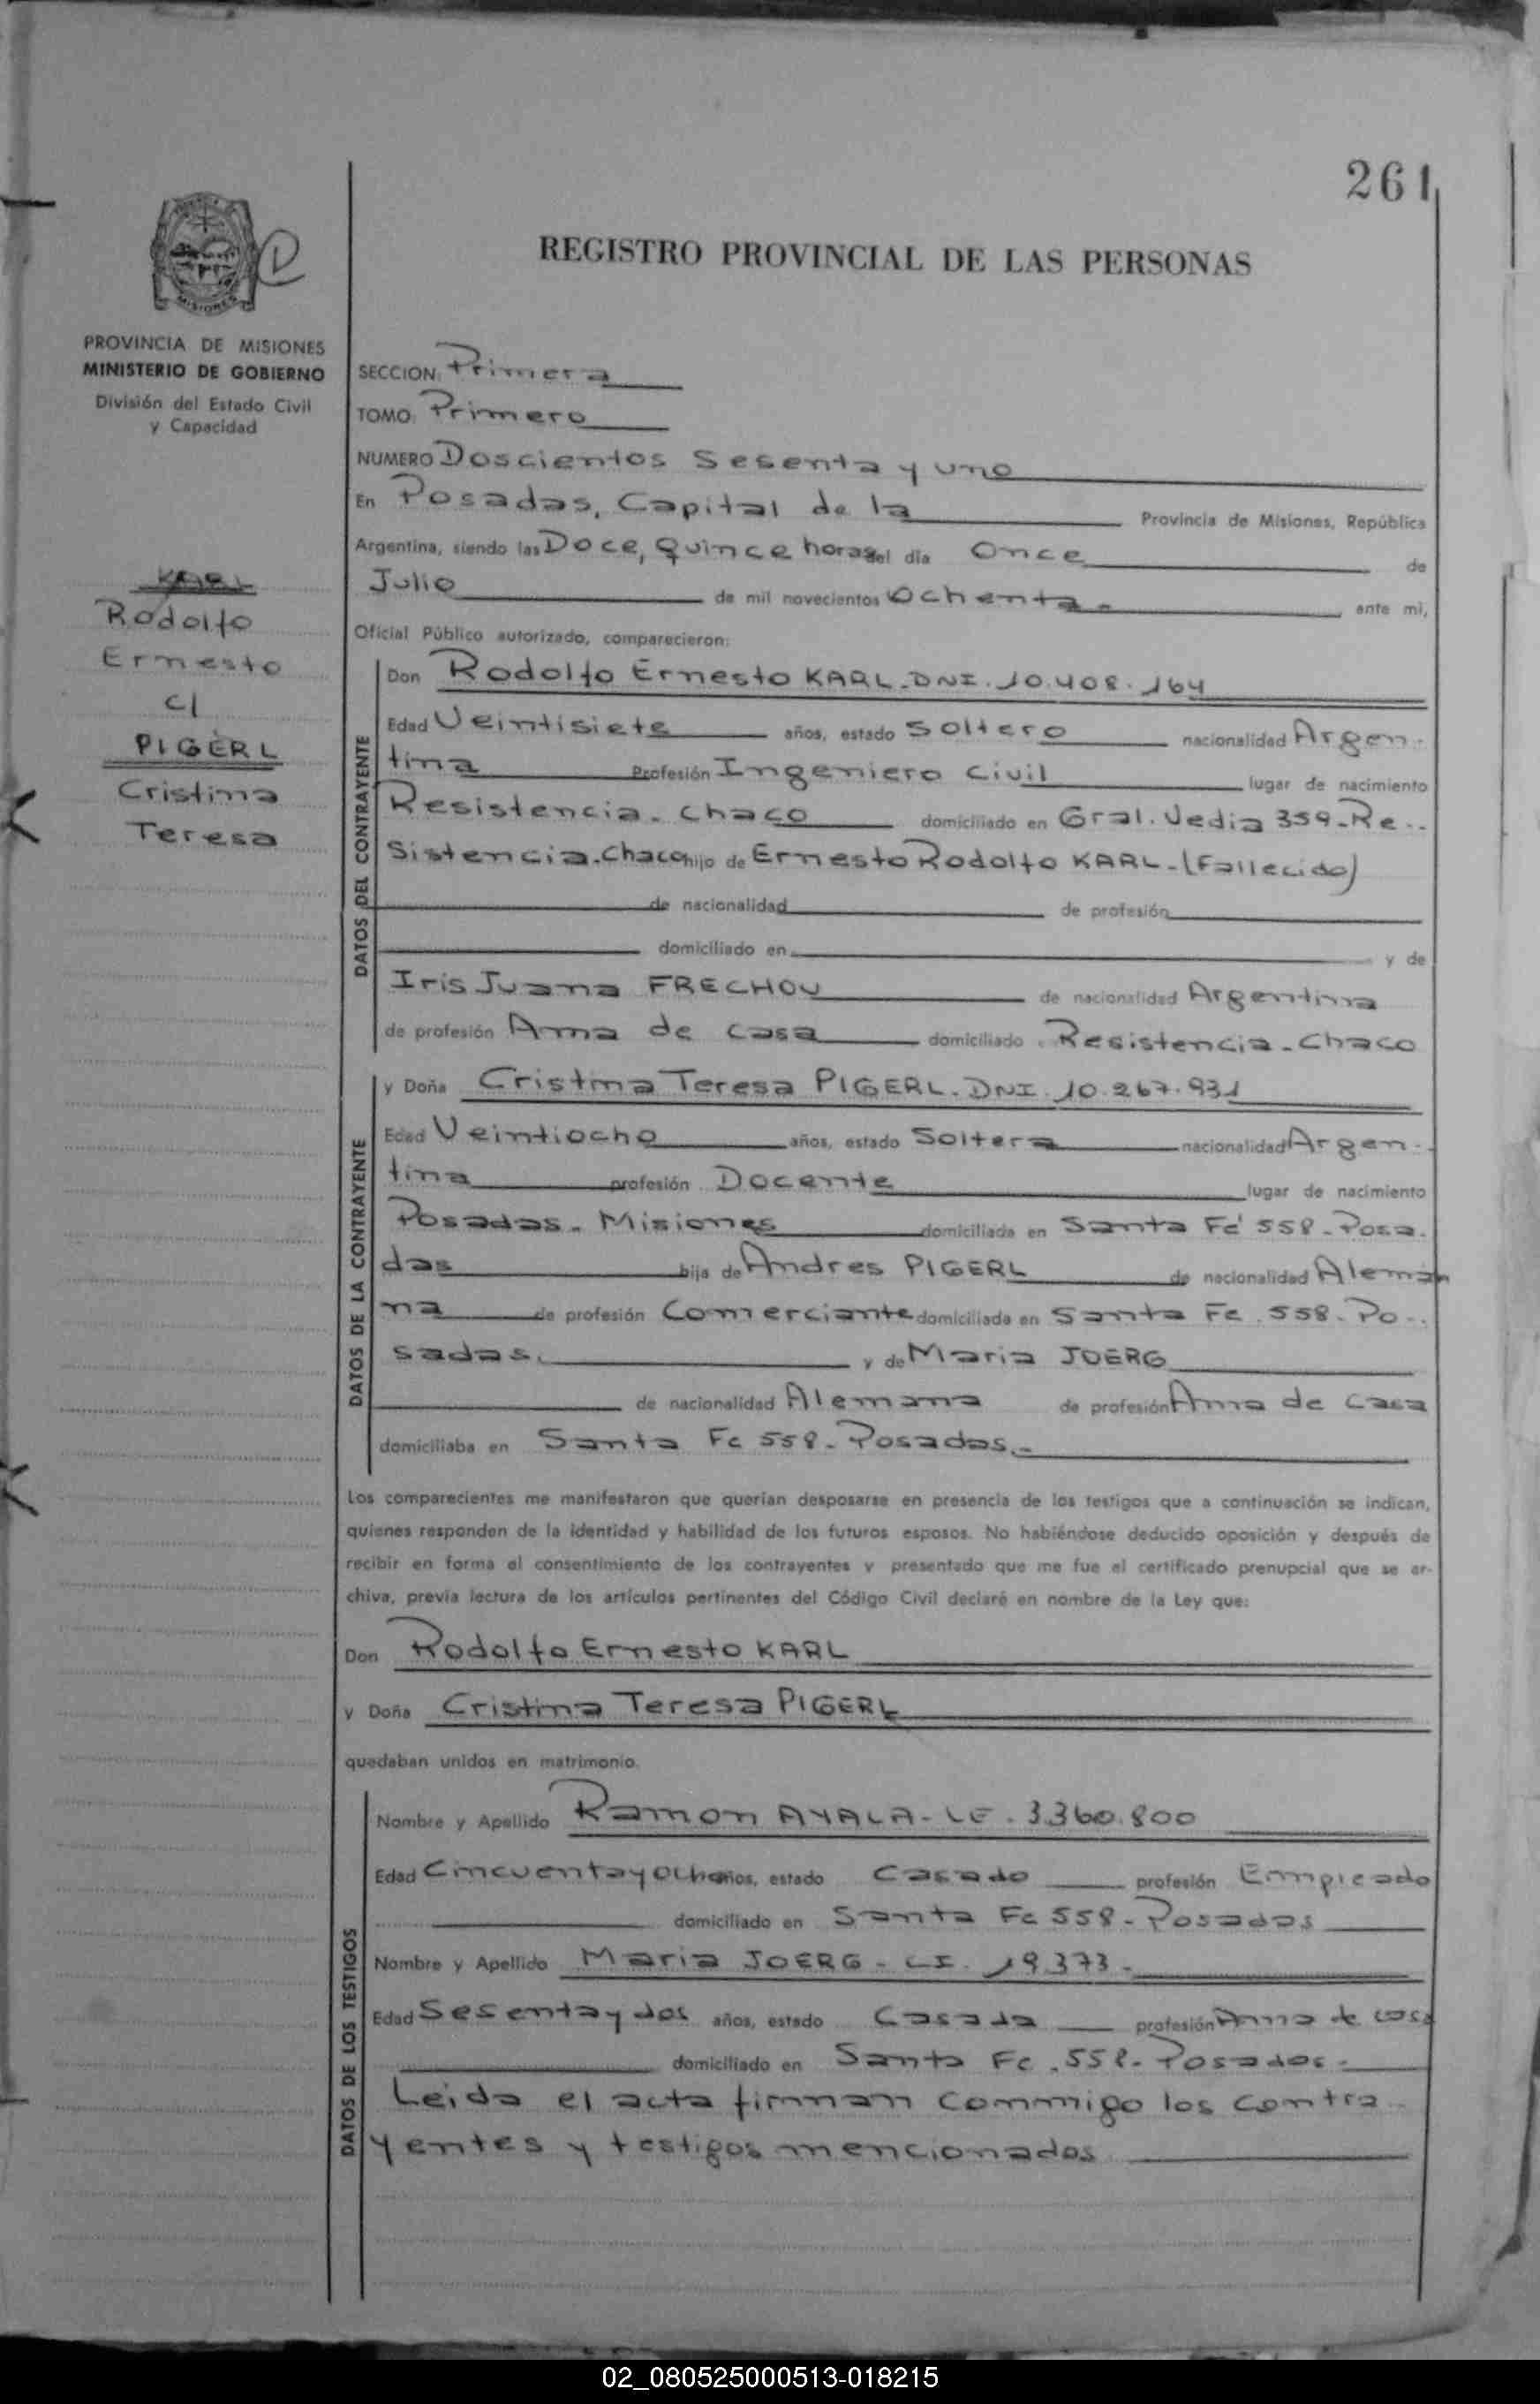 261
REGISTRO PROVINCIAL DE LAS PERSONAS
MISIONES
PROVINCIA DE MISIONES
MINISTERIO DE GOBIERNO
División del Estado Civil
y Capacidad
KARL
Rodolfo
Ernesto
c/
PIGERL
Cristina
Teresa
SECCION: Primera
TOMO: Primero
NUMERO Doscientos Sesenta y uno
En Posadas, Capital de la Provincia de Misiones, República
Argentina, siendo las Doce, quince horas del día Once de
Julio de mil novecientos Ochenta.- ante mi,
Oficial Público autorizado, comparecieron:
DATOS DEL CONTRAYENTE
Don Rodolfo Ernesto KARL-DNI.10.408.164
Edad Veintisiete años, estado Soltero nacionalidad Argen-
tina Profesión Ingeniero Civil lugar de nacimiento
Resistencia- Chaco domiciliado en Gral. Vedia 359-Re-
sistencia-Chaco hijo de Ernesto Rodolfo KARL-(Fallecido)
de nacionalidad de profesión
domiciliado en y de
Iris Juana FRECHOU de nacionalidad Argentina
de profesión Ama de casa domiciliado Resistencia-Chaco
DATOS DE LA CONTRAYENTE
y Doña Cristina Teresa PIGERL-DNI.10.267.931
Edad Veintiocho años, estado Soltera nacionalidad Argen-
tina profesión Docente lugar de nacimiento
Posadas- Misiones domiciliada en Santa Fé 558-Posa-
das hija de Andres PIGERL de nacionalidad Alema
na de profesión Comerciante domiciliada en Santa Fe.558-Po-
sadas. y de Maria JOERG
de nacionalidad Alemana de profesión Ama de Casa
domiciliaba en Santa Fe 558-Posadas.-
Los comparecientes me manifestaron que querían desposarse en presencia de los testigos que a continuación se indican,
quienes responden de la identidad y habilidad de los futuros esposos. No habiéndose deducido oposición y después de
recibir en forma el consentimiento de los contrayentes y presentado que me fue el certificado prenupcial que se ar-
chiva, previa lectura de los artículos pertinentes del Código Civil declaré en nombre de la Ley que:
Don Rodolfo Ernesto KARL
y Doña Cristina Teresa PIGERL
quedaban unidos en matrimonio.
DATOS DE LOS TESTIGOS
Nombre y Apellido Ramon AYALA-LE-3.360.800
Edad Cincuenta y ocho años, estado Casado profesión Empleado
domiciliado en Santa Fe 558-Posadas
Nombre y Apellido Maria JOERG-CI. 19.373-
Edad Sesenta y dos años, estado Casada profesión Ama de casa
domiciliado en Santa Fe.558-Posadas.-
Leida el acta firman conmigo los contra-
yentes y testigos mencionados
02_080525000513-018215